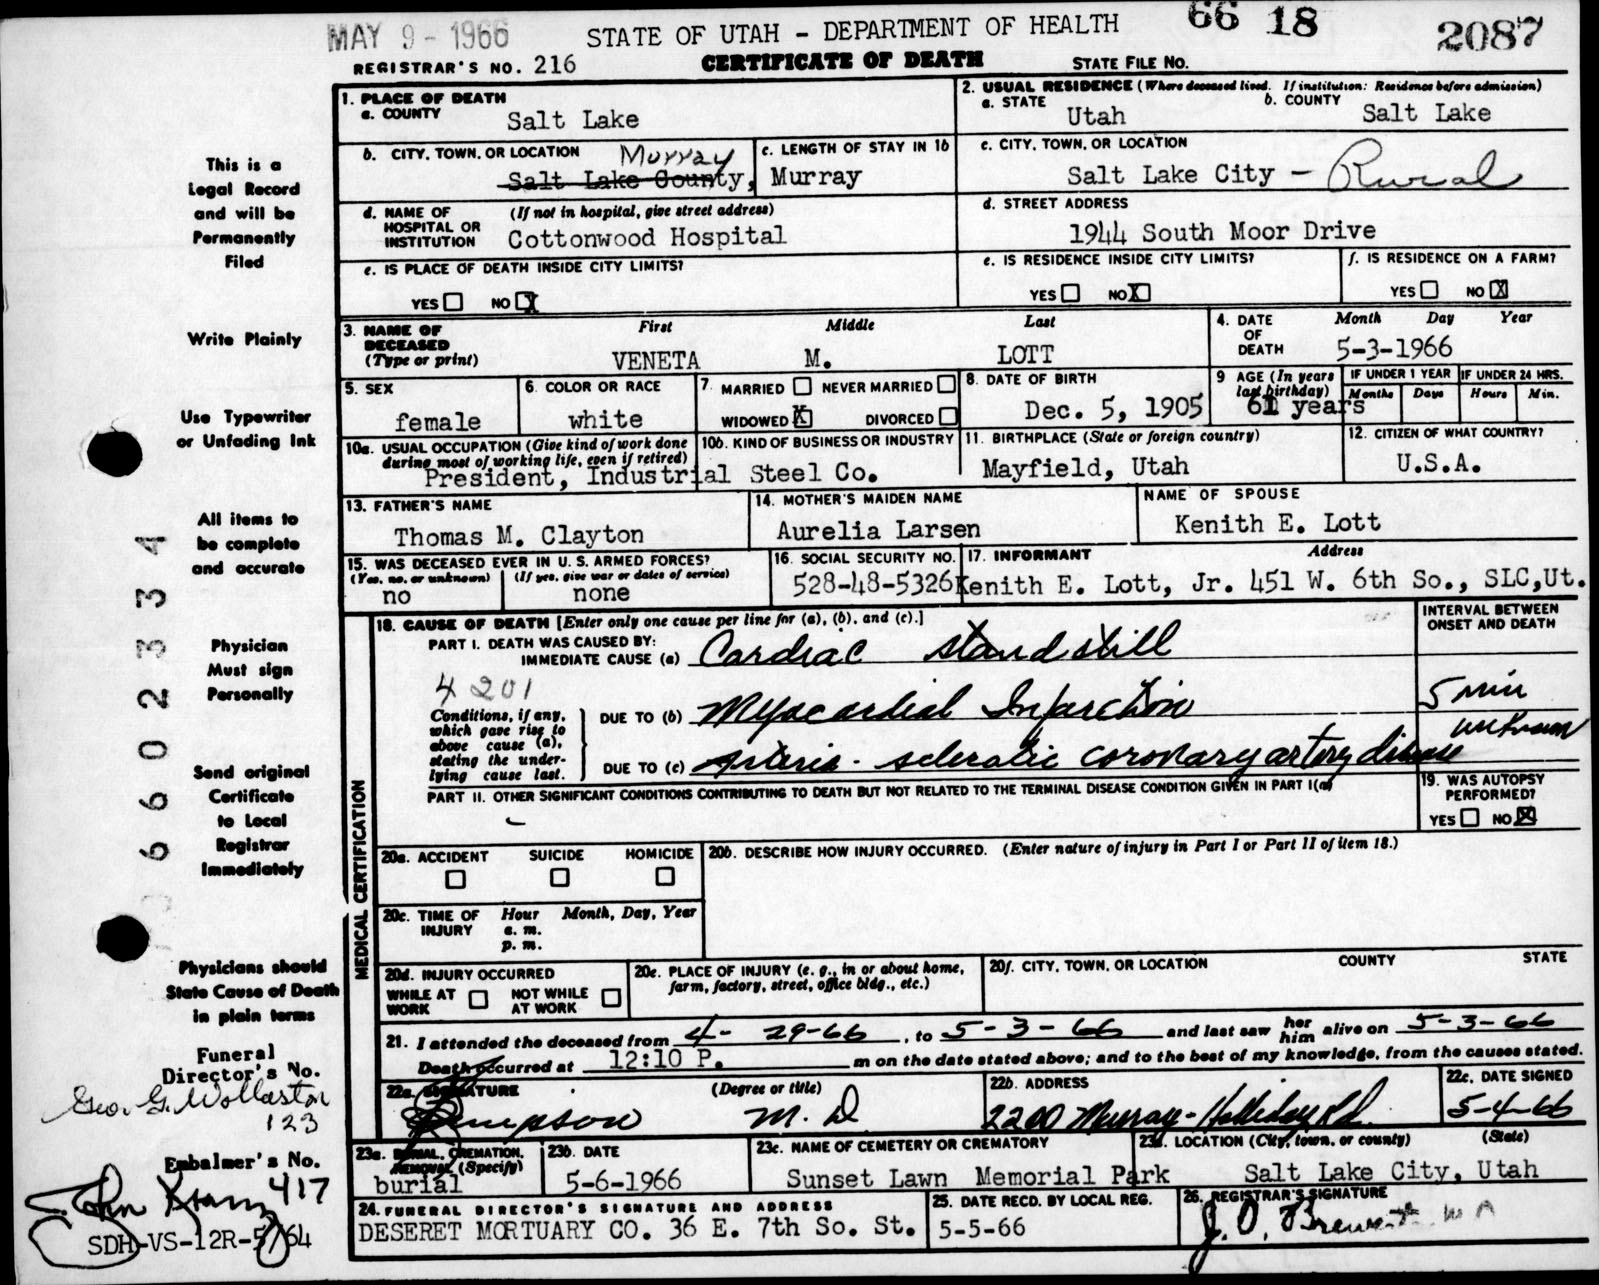 MAY 9 - 1966
STATE OF UTAH - DEPARTMENT OF HEALTH
66 18 2087
REGISTRAR'S NO. 216
CERTIFICATE OF DEATH
STATE FILE No.
1. PLACE OF DEATH
a. COUNTY
Salt Lake
2. USUAL RESIDENCE (Where deceased lived. If institution: Residence before admission)
a. STATE
Utah
b. COUNTY
Salt Lake
b. CITY, TOWN, OR LOCATION
Murray
Salt Lake County,
c. LENGTH OF STAY IN 1b
Murray
c. CITY, TOWN, OR LOCATION
Salt Lake City - Rural
d. NAME OF HOSPITAL OR INSTITUTION
(If not in hospital, give street address)
Cottonwood Hospital
d. STREET ADDRESS
1944 South Moor Drive
e. IS PLACE OF DEATH INSIDE CITY LIMITS?
YES NO X
e. IS RESIDENCE INSIDE CITY LIMITS?
YES NO X
f. IS RESIDENCE ON A FARM?
YES NO X
3. NAME OF DECEASED
(Type or print)
First Middle Last
VENETA M. LOTT
4. DATE OF DEATH
Month Day Year
5-3-1966
5. SEX
female
6. COLOR OR RACE
white
7. MARRIED NEVER MARRIED
WIDOWED X DIVORCED
8. DATE OF BIRTH
Dec. 5, 1905
9 AGE (In years last birthday)
years
IF UNDER 1 YEAR
Months Days
IF UNDER 24 HRS.
Hours Min.
10a. USUAL OCCUPATION (Give kind of work done during most of working life, even if retired)
10b. KIND OF BUSINESS OR INDUSTRY
President, Industrial Steel Co.
11. BIRTHPLACE (State or foreign country)
Mayfield, Utah
12. CITIZEN OF WHAT COUNTRY?
U.S.A.
13. FATHER'S NAME
Thomas M. Clayton
14. MOTHER'S MAIDEN NAME
Aurelia Larsen
NAME OF SPOUSE
Kenith E. Lott
15. WAS DECEASED EVER IN U. S. ARMED FORCES?
(Yes, no, or unknown)
no
(If yes, give war or dates of service)
none
16. SOCIAL SECURITY NO.
528-48-5326
17. INFORMANT Address
Kenith E. Lott, Jr. 451 W. 6th So., SLC,Ut.
MEDICAL CERTIFICATION
18. CAUSE OF DEATH [Enter only one cause per line for (a), (b), and (c).]
INTERVAL BETWEEN ONSET AND DEATH
PART I. DEATH WAS CAUSED BY:
IMMEDIATE CAUSE (a) Cardiac standstill
4201
Conditions, if any, which gave rise to above cause (a), stating the underlying cause last.
DUE TO (b) Myocardial Infarction
5 min
DUE TO (c) Arterio-sclerotic coronary artery disease
unknown
PART II. OTHER SIGNIFICANT CONDITIONS CONTRIBUTING TO DEATH BUT NOT RELATED TO THE TERMINAL DISEASE CONDITION GIVEN IN PART I(a)
19. WAS AUTOPSY PERFORMED?
YES NO X
20a. ACCIDENT SUICIDE HOMICIDE
20b. DESCRIBE HOW INJURY OCCURRED. (Enter nature of injury in Part I or Part II of item 18.)
20c. TIME OF INJURY
Hour Month, Day, Year
a. m.
p. m.
20d. INJURY OCCURRED
WHILE AT WORK NOT WHILE AT WORK
20e. PLACE OF INJURY (e. g., in or about home, farm, factory, street, office bldg., etc.)
20f. CITY, TOWN, OR LOCATION COUNTY STATE
21. I attended the deceased from 4-29-66, to 5-3-66 and last saw her him alive on 5-3-66
Death occurred at 12:10 P. m on the date stated above; and to the best of my knowledge, from the causes stated.
22a. SIGNATURE (Degree or title)
M. D.
22b. ADDRESS
2200 Murray-Holliday Rd.
22c. DATE SIGNED
5-4-66
23a. BURIAL, CREMATION, REMOVAL (Specify)
burial
23b. DATE
5-6-1966
23c. NAME OF CEMETERY OR CREMATORY
Sunset Lawn Memorial Park
23d. LOCATION (City, town, or county) (State)
Salt Lake City, Utah
24. FUNERAL DIRECTOR'S SIGNATURE AND ADDRESS
DESERET MORTUARY CO. 36 E. 7th So. St.
25. DATE RECD. BY LOCAL REG.
5-5-66
26. REGISTRAR'S SIGNATURE
J. O.
This is a
Legal Record
and will be
Permanently
Filed
Write Plainly
Use Typewriter
or Unfading Ink
All items to
be complete
and accurate
Physician
Must sign
Personally
Send original
Certificate
to Local
Registrar
Immediately
Physicians should
State Cause of Death
in plain terms
Funeral
Director's No.
Geo. G. Wollaston
123
Embalmer's No.
417
SDH-VS-12R-5/64
6602334